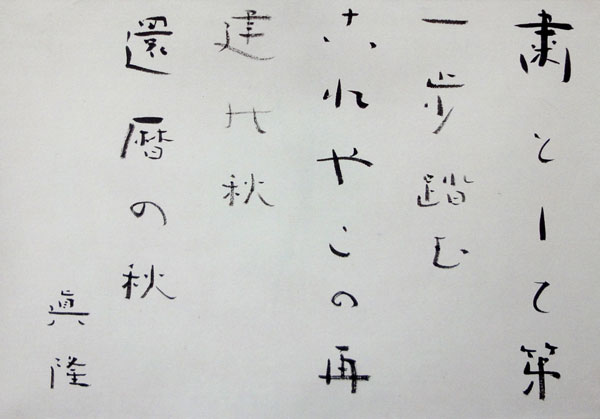 粛として第
一歩踏む
これやこの再
建の秋
還暦の秋
眞隆